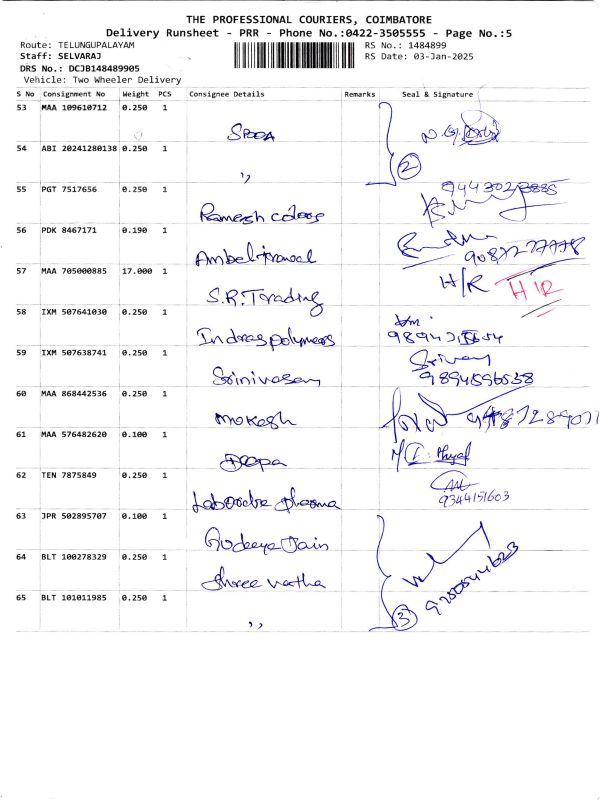 THE PROFESSIONAL COURIERS, COIMBATORE
Delivery Runsheet - PRR - Phone No.:0422-3505555 - Page No.:5
Route: TELUNGUPALAYAM RS No.: 1484899
Staff: SELVARAJ RS Date: 03-Jan-2025
DRS No.: DCJB148489905
Vehicle: Two Wheeler Delivery
S No Consignment No Weight PCS Consignee Details Remarks Seal & Signature
53 MAA 109610712 0.250 1
54 ABI 20241280138 0.250 1
,, 2
55 PGT 7517656 0.250 1
Ramesh
56 PDK 8467171 0.190 1
57 MAA 705000885 17.000 1
S.R. Trading H/R H/R
58 IXM 507641030 0.250 1
59 IXM 507638741 0.250 1
Srinivasan
60 MAA 868442536 0.250 1
Mokesh
61 MAA 576482620 0.100 1
Deepa
62 TEN 7875849 0.250 1
9344151603
63 JPR 502895707 0.100 1
Jain
64 BLT 100278329 0.250 1
Shree
65 BLT 101011985 0.250 1
,, 3